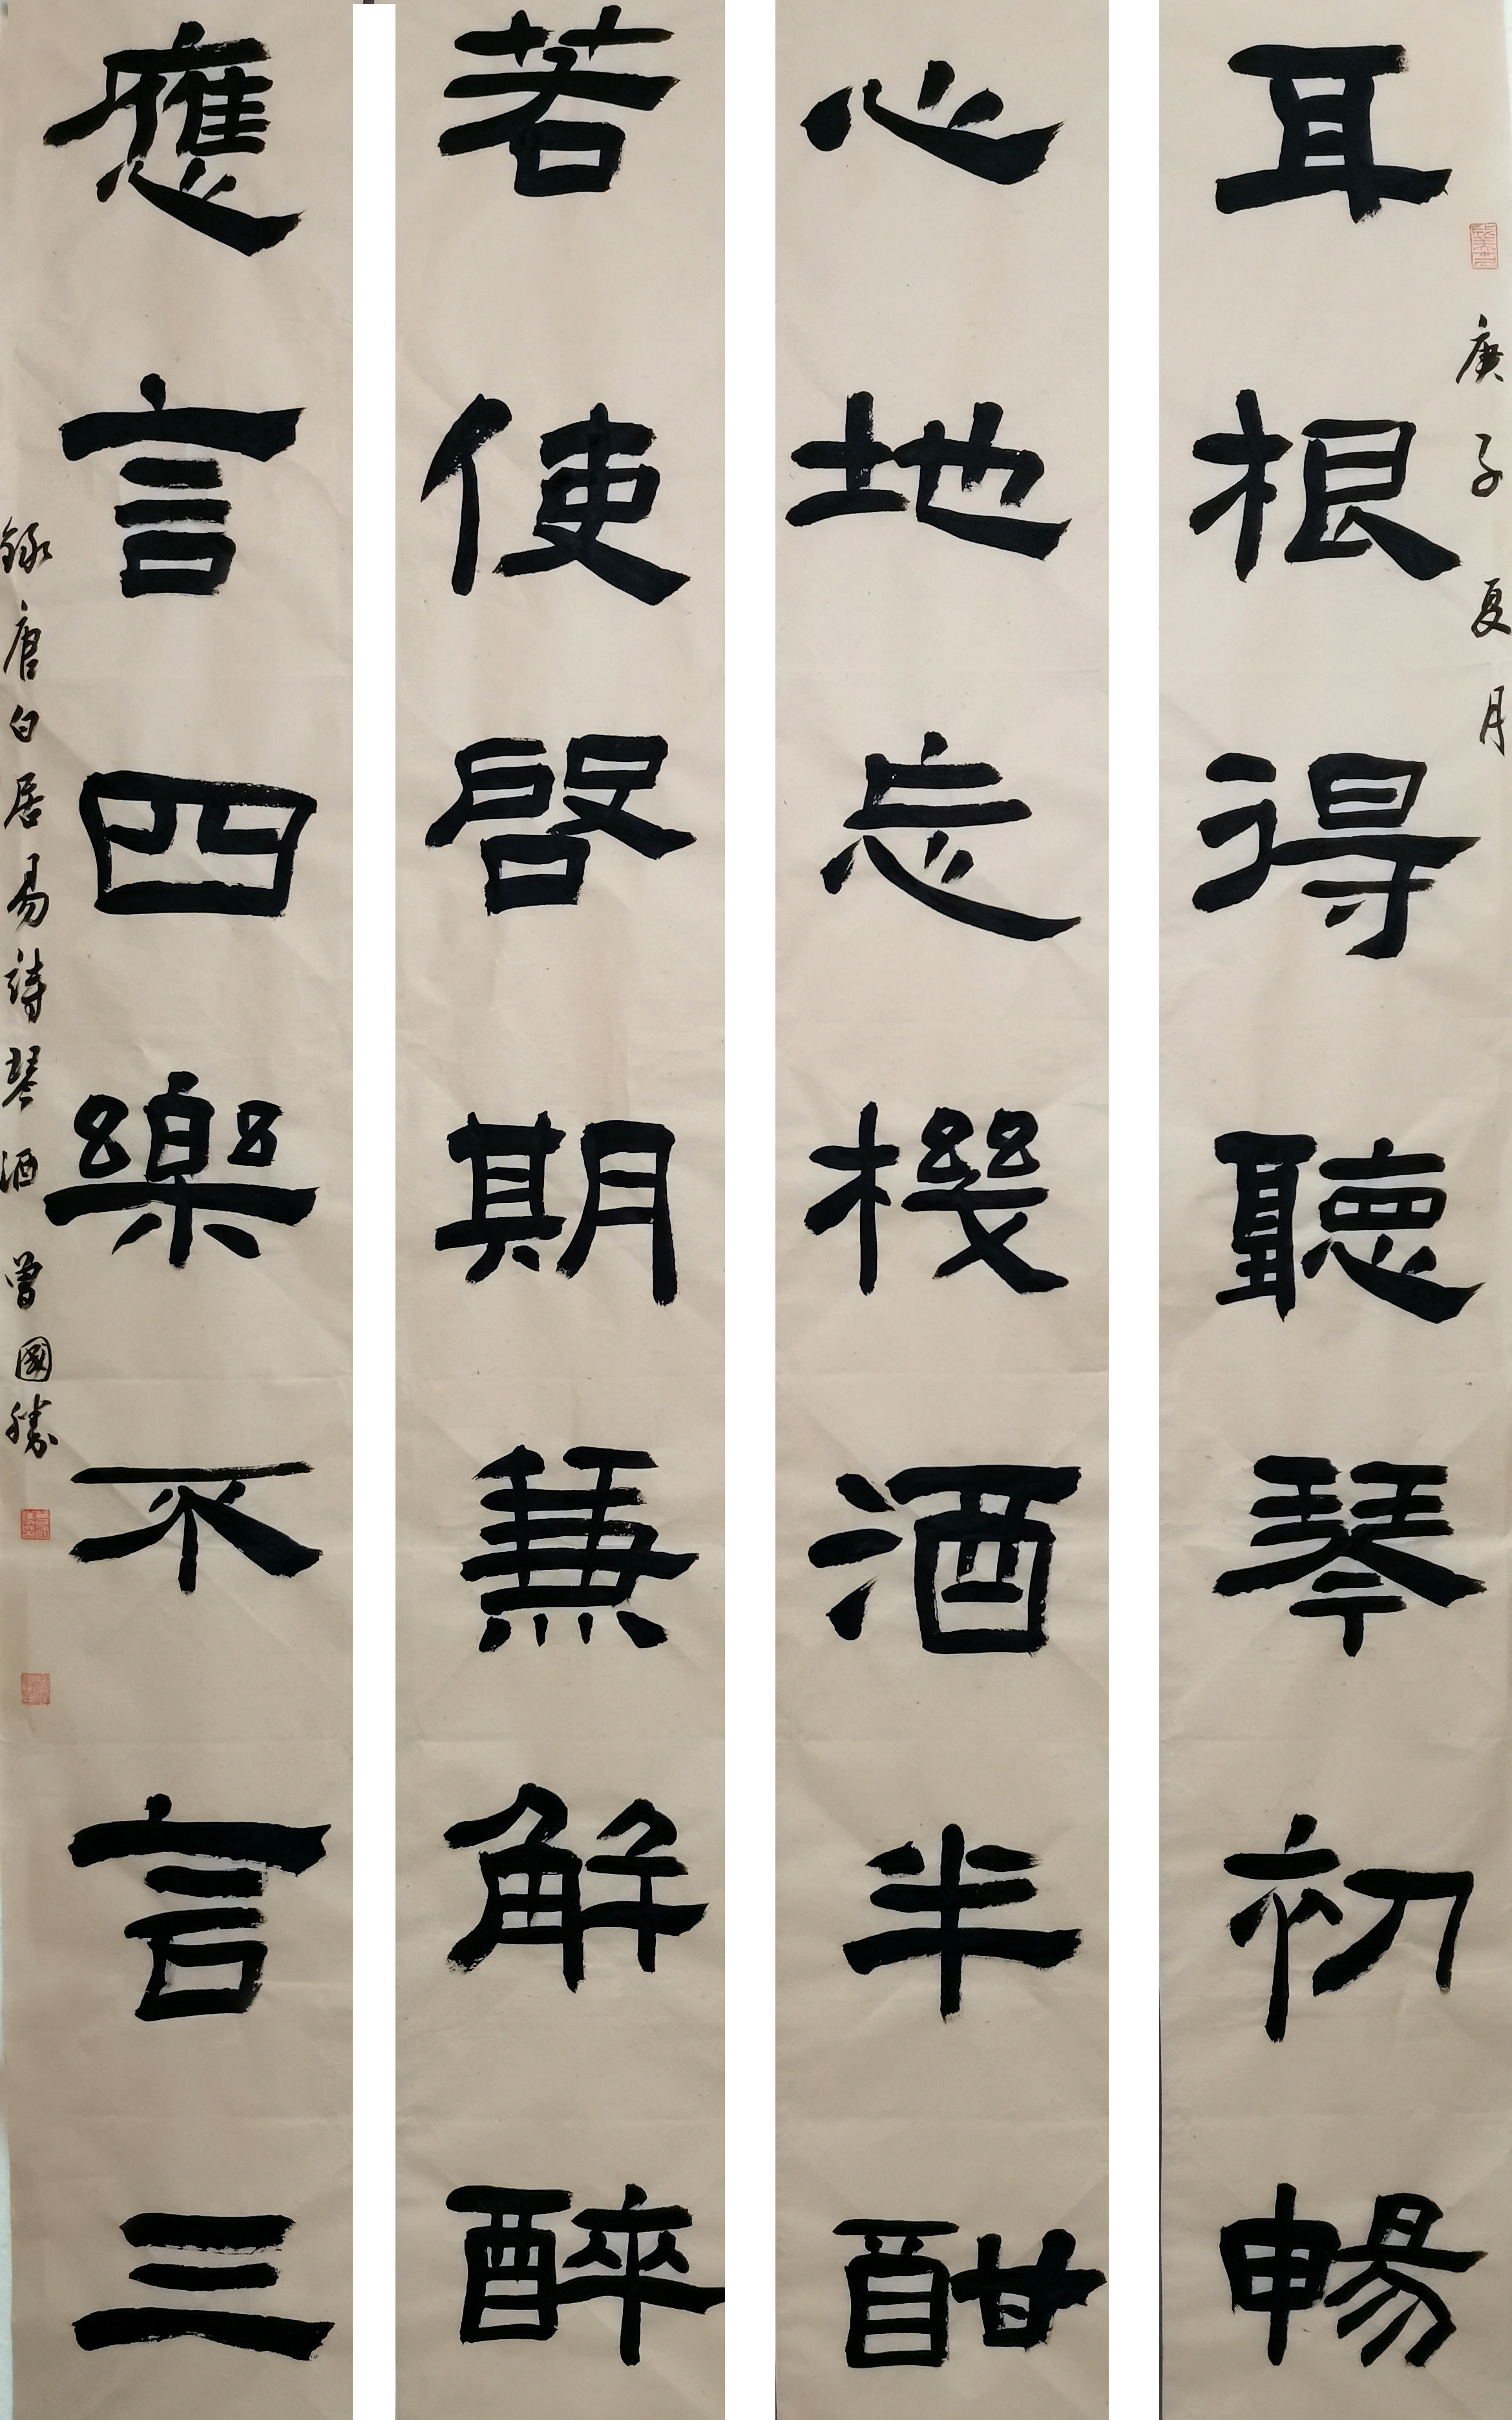 庚子夏月
耳根得聽琴初暢
心地忘機酒半酣
若使啓期兼解醉
應言四樂不言三
錄唐白居易詩琴酒 曾國勝